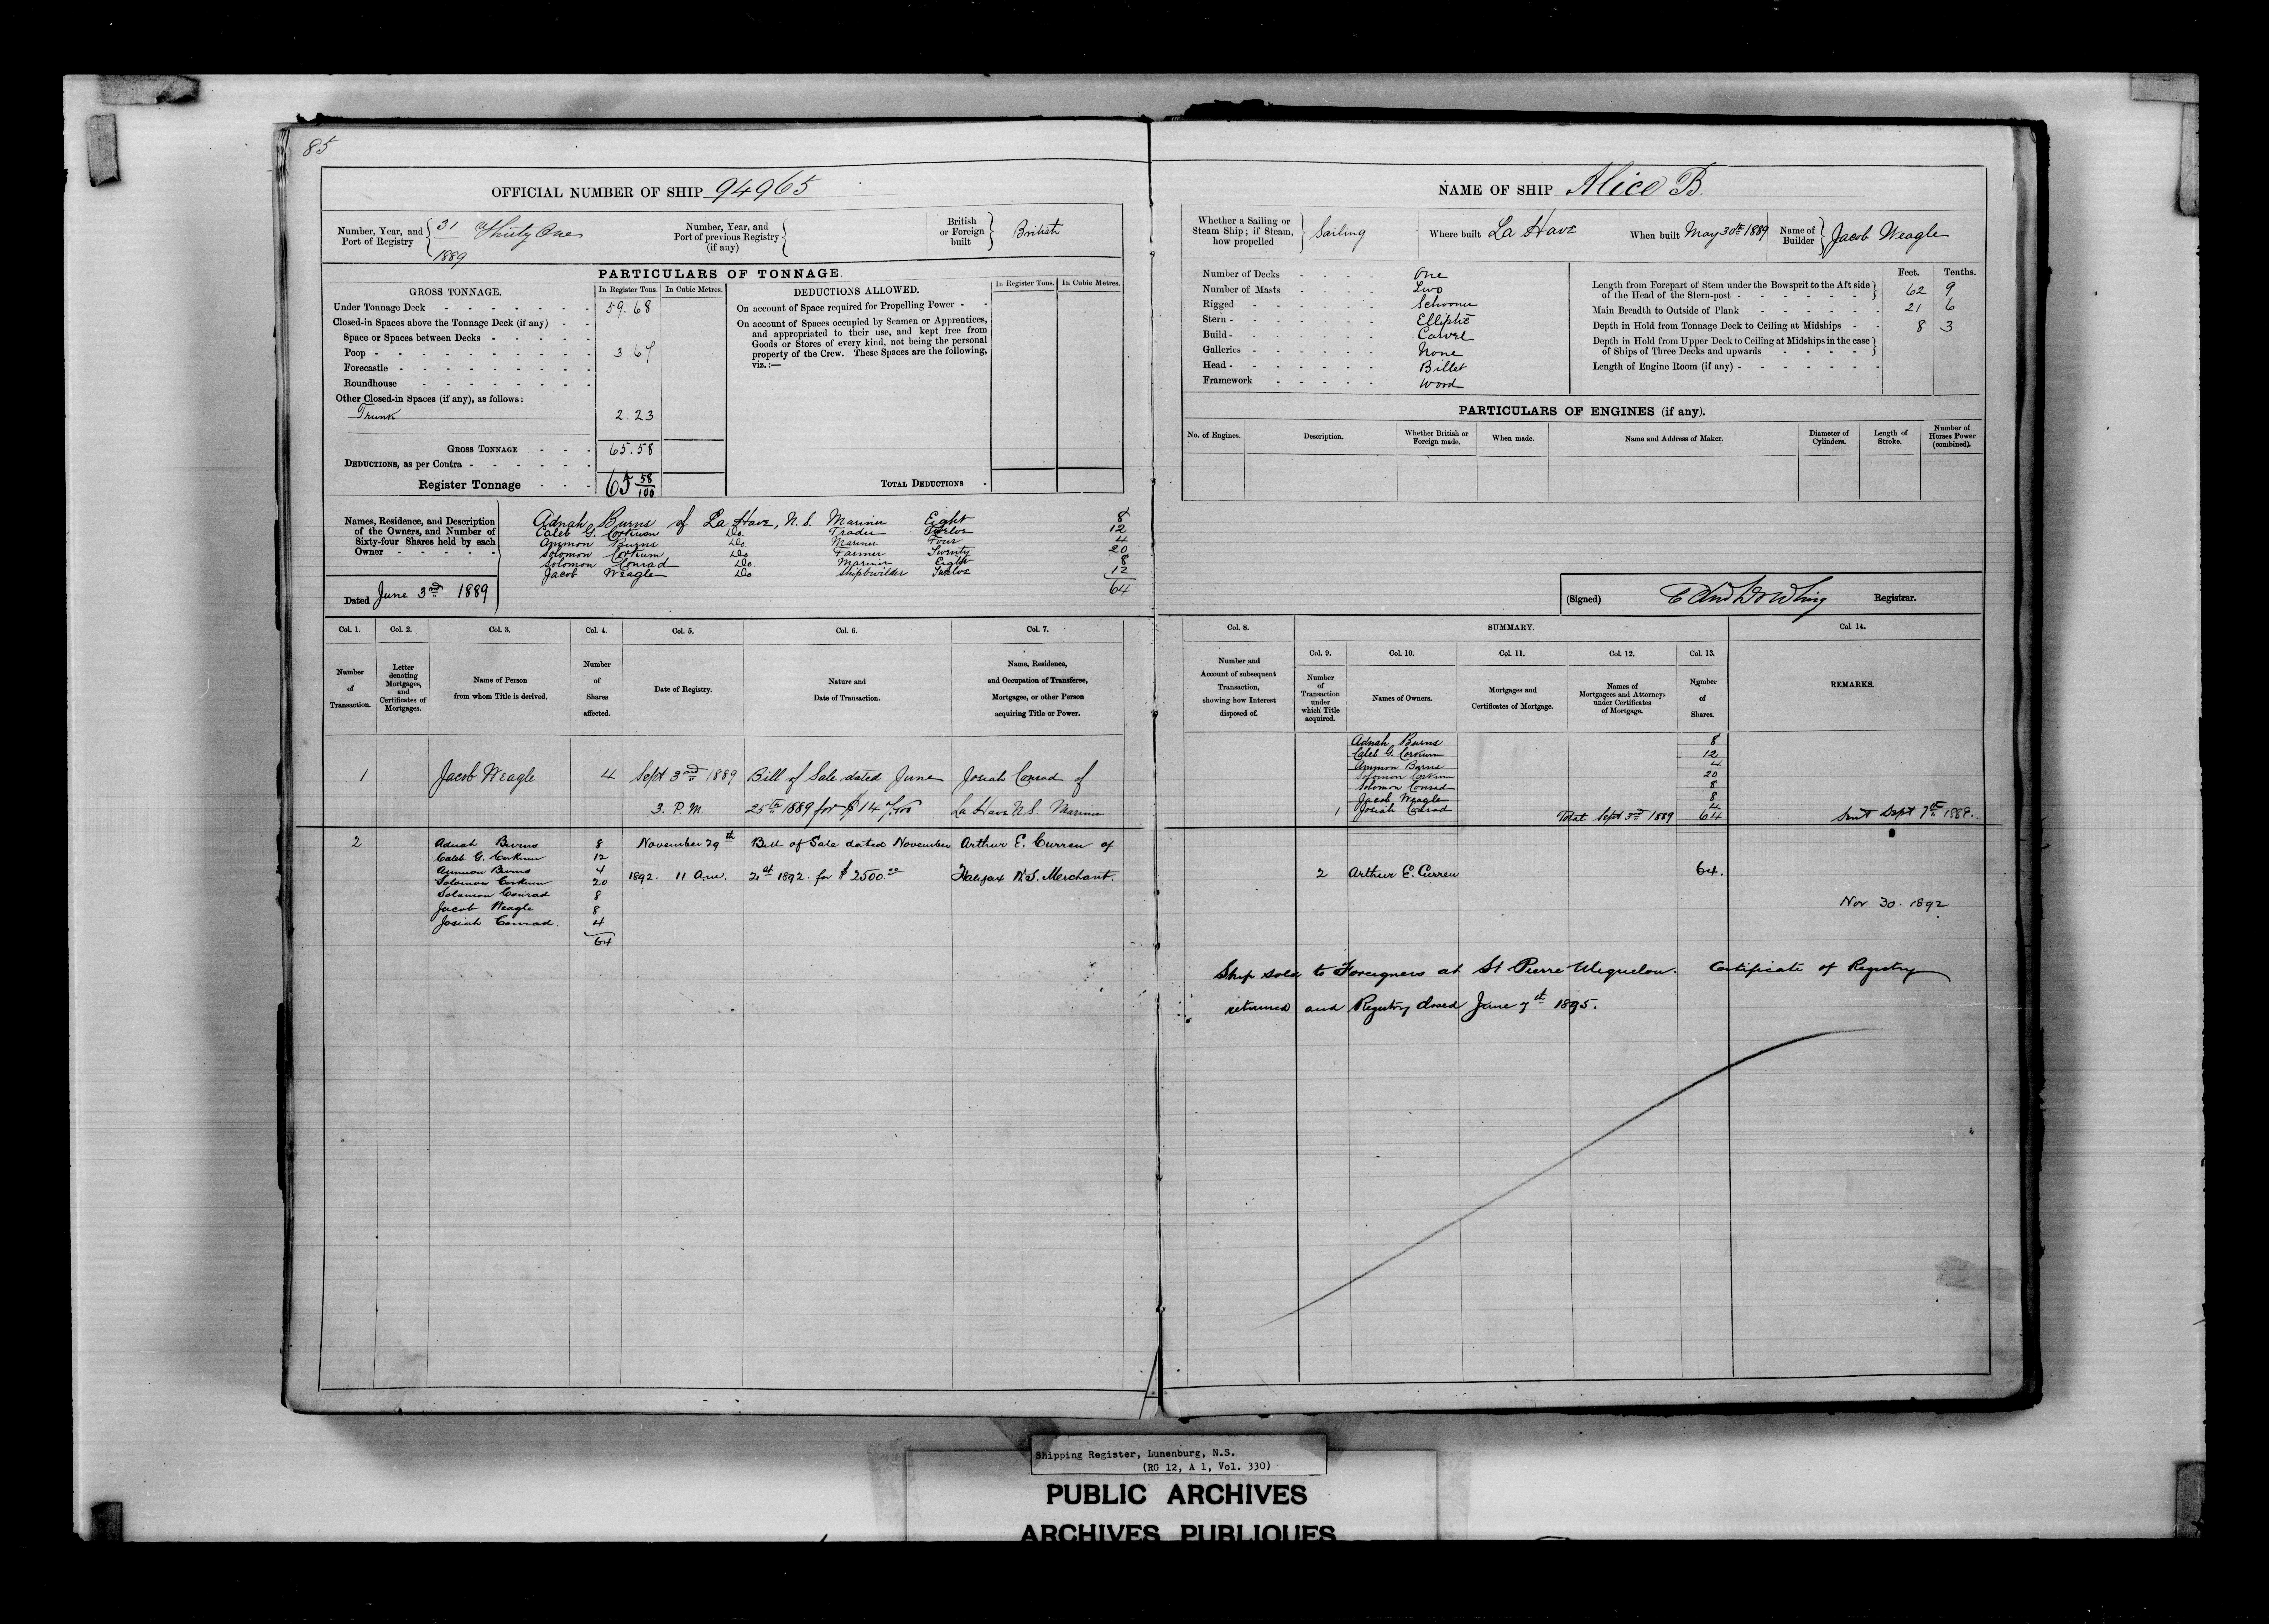 85
OFFICIAL NUMBER OF SHIP 94965
Number, Year, and Port of Registry 31 Thirty One 1889
Number, Year, and Port of previous Registry (if any)
British or Foreign built British
PARTICULARS OF TONNAGE.
GROSS TONNAGE. In Register Tons. In Cubic Metres.
Under Tonnage Deck 59.68
Closed-in Spaces above the Tonnage Deck (if any)
Space or Spaces between Decks
Poop 3.67
Forecastle
Roundhouse
Other Closed-in Spaces (if any), as follows:
Trunk 2.23
GROSS TONNAGE 65.58
DEDUCTIONS, as per Contra
Register Tonnage 65 58/100
DEDUCTIONS ALLOWED. In Register Tons. In Cubic Metres.
On account of Space required for Propelling Power
On account of Spaces occupied by Seamen or Apprentices,
and appropriated to their use, and kept free from
Goods or Stores of every kind, not being the personal
property of the Crew. These Spaces are the following,
viz.:—
TOTAL DEDUCTIONS
Names, Residence, and Description
of the Owners, and Number of
Sixty-four Shares held by each
Owner
Adnah Burns of La Have, N.S. Mariner Eight 8
Caleb G. Corkum Do. Trader Twelve 12
Ammon Burns Do. Mariner Four 4
Solomon Corkum Do Farmer Twenty 20
Solomon Conrad Do. Mariner Eight 8
Jacob Weagle Do Shipbuilder Twelve 12
64
Dated June 3rd 1889
Col. 1. Col. 2. Col. 3. Col. 4. Col. 5. Col. 6. Col. 7.
Number of Transaction.
Letter denoting Mortgages, and Certificates of Mortgages.
Name of Person from whom Title is derived.
Number of Shares affected.
Date of Registry.
Nature and Date of Transaction.
Name, Residence, and Occupation of Transferee, Mortgagee, or other Person acquiring Title or Power.
1 Jacob Weagle 4 Sept 3rd 1889 Bill of Sale dated June Josiah Conrad of
3. P.M. 25th 1889 for $ 14 La Have N.S. Mariner
2 Adnah Burns 8 November 29th Bill of Sale dated November Arthur E. Curren of
Caleb G. Corkum 12
Ammon Burns 4 1892. 11 a.m. 21st 1892 for $2500.00 Halifax N.S. Merchant.
Solomon Corkum 20
Solomon Conrad 8
Jacob Weagle 8
Josiah Conrad. 4
64
NAME OF SHIP Alice B.
Whether a Sailing or Steam Ship; if Steam, how propelled Sailing
Where built La Have
When built May 30th 1889
Name of Builder Jacob Weagle
Number of Decks One
Number of Masts Two
Rigged Schooner
Stern Elliptic
Build Carvel
Galleries None
Head Billet
Framework Wood
Feet. Tenths.
Length from Forepart of Stem under the Bowsprit to the Aft side of the Head of the Stern-post 62 9
Main Breadth to Outside of Plank 21 6
Depth in Hold from Tonnage Deck to Ceiling at Midships 8 3
Depth in Hold from Upper Deck to Ceiling at Midships in the case of Ships of Three Decks and upwards
Length of Engine Room (if any)
PARTICULARS OF ENGINES (if any).
No. of Engines. Description. Whether British or Foreign made. When made. Name and Address of Maker. Diameter of Cylinders. Length of Stroke. Number of Horses Power (combined).
(Signed) Dowling Registrar.
Col. 8. SUMMARY. Col. 14.
Col. 9. Col. 10. Col. 11. Col. 12. Col. 13.
Number and Account of subsequent Transaction, showing how Interest disposed of.
Number of Transaction under which Title acquired.
Names of Owners.
Mortgages and Certificates of Mortgage.
Names of Mortgagees and Attorneys under Certificates of Mortgage.
Number of Shares.
REMARKS.
Adnah Burns 8
Caleb G. Corkum 12
Ammon Burns 4
Solomon Corkum 20
Solomon Conrad 8
Jacob Weagle 8
1 Josiah Conrad 4
Total Sept 3rd 1889 64 Sent Sept 7th 1889.
2 Arthur E. Curren 64.
Nov 30. 1892
Ship sold to Foreigners at St Pierre Miquelon. Certificate of Registry
returned and Registry closed June 7th 1895.
Shipping Register, Lunenburg, N.S.
(RG 12, A 1, Vol. 330)
PUBLIC ARCHIVES
ARCHIVES PUBLIQUES